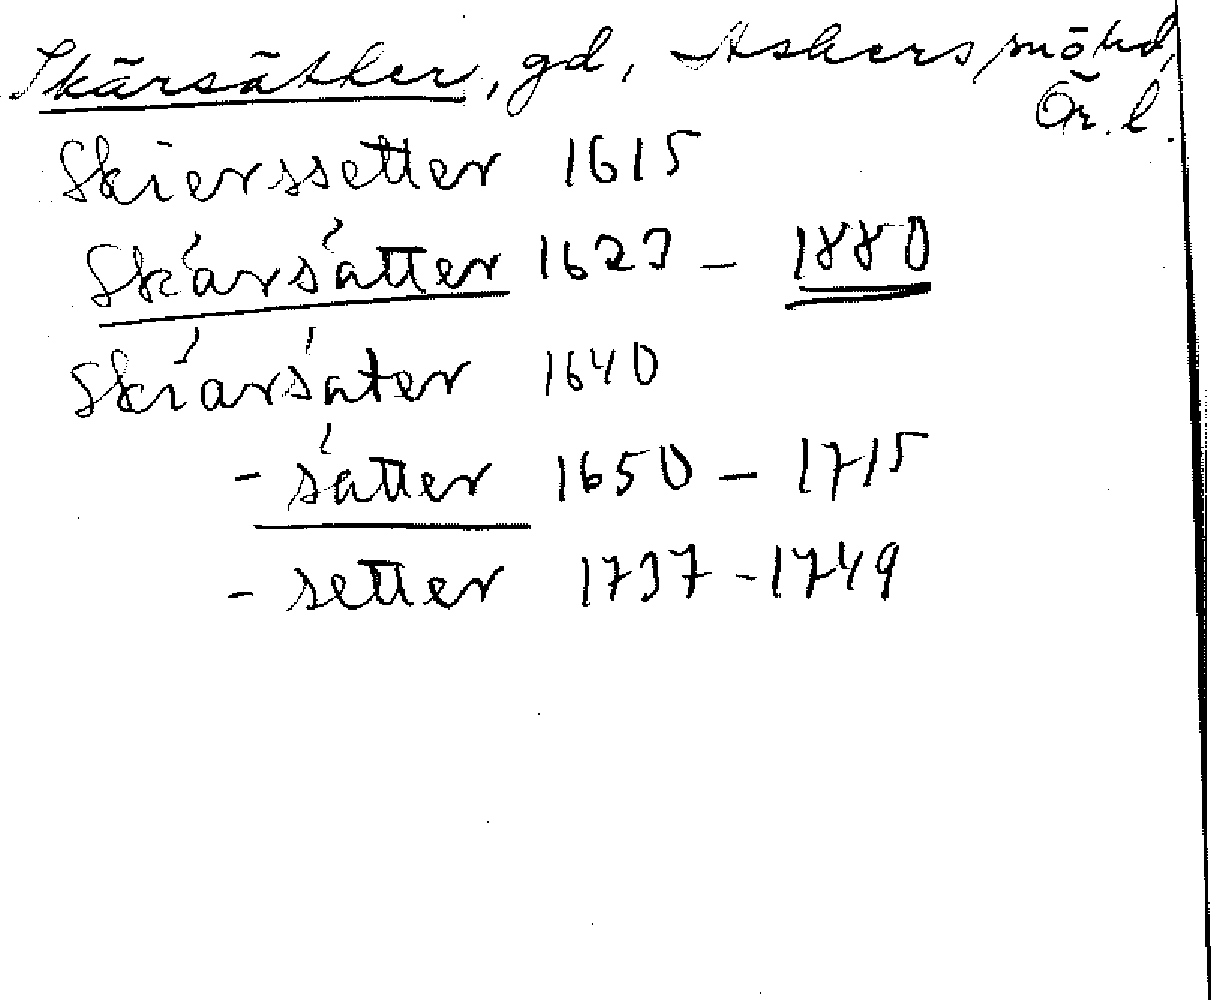 Skärsätter, gd, Askers sn o hd,
Ör. l.
Skierssetter 1615
Skärsätter 1623 – 1880
Skiärsäter 1640
- sätter 1650 – 1715
- setter 1737 - 1749